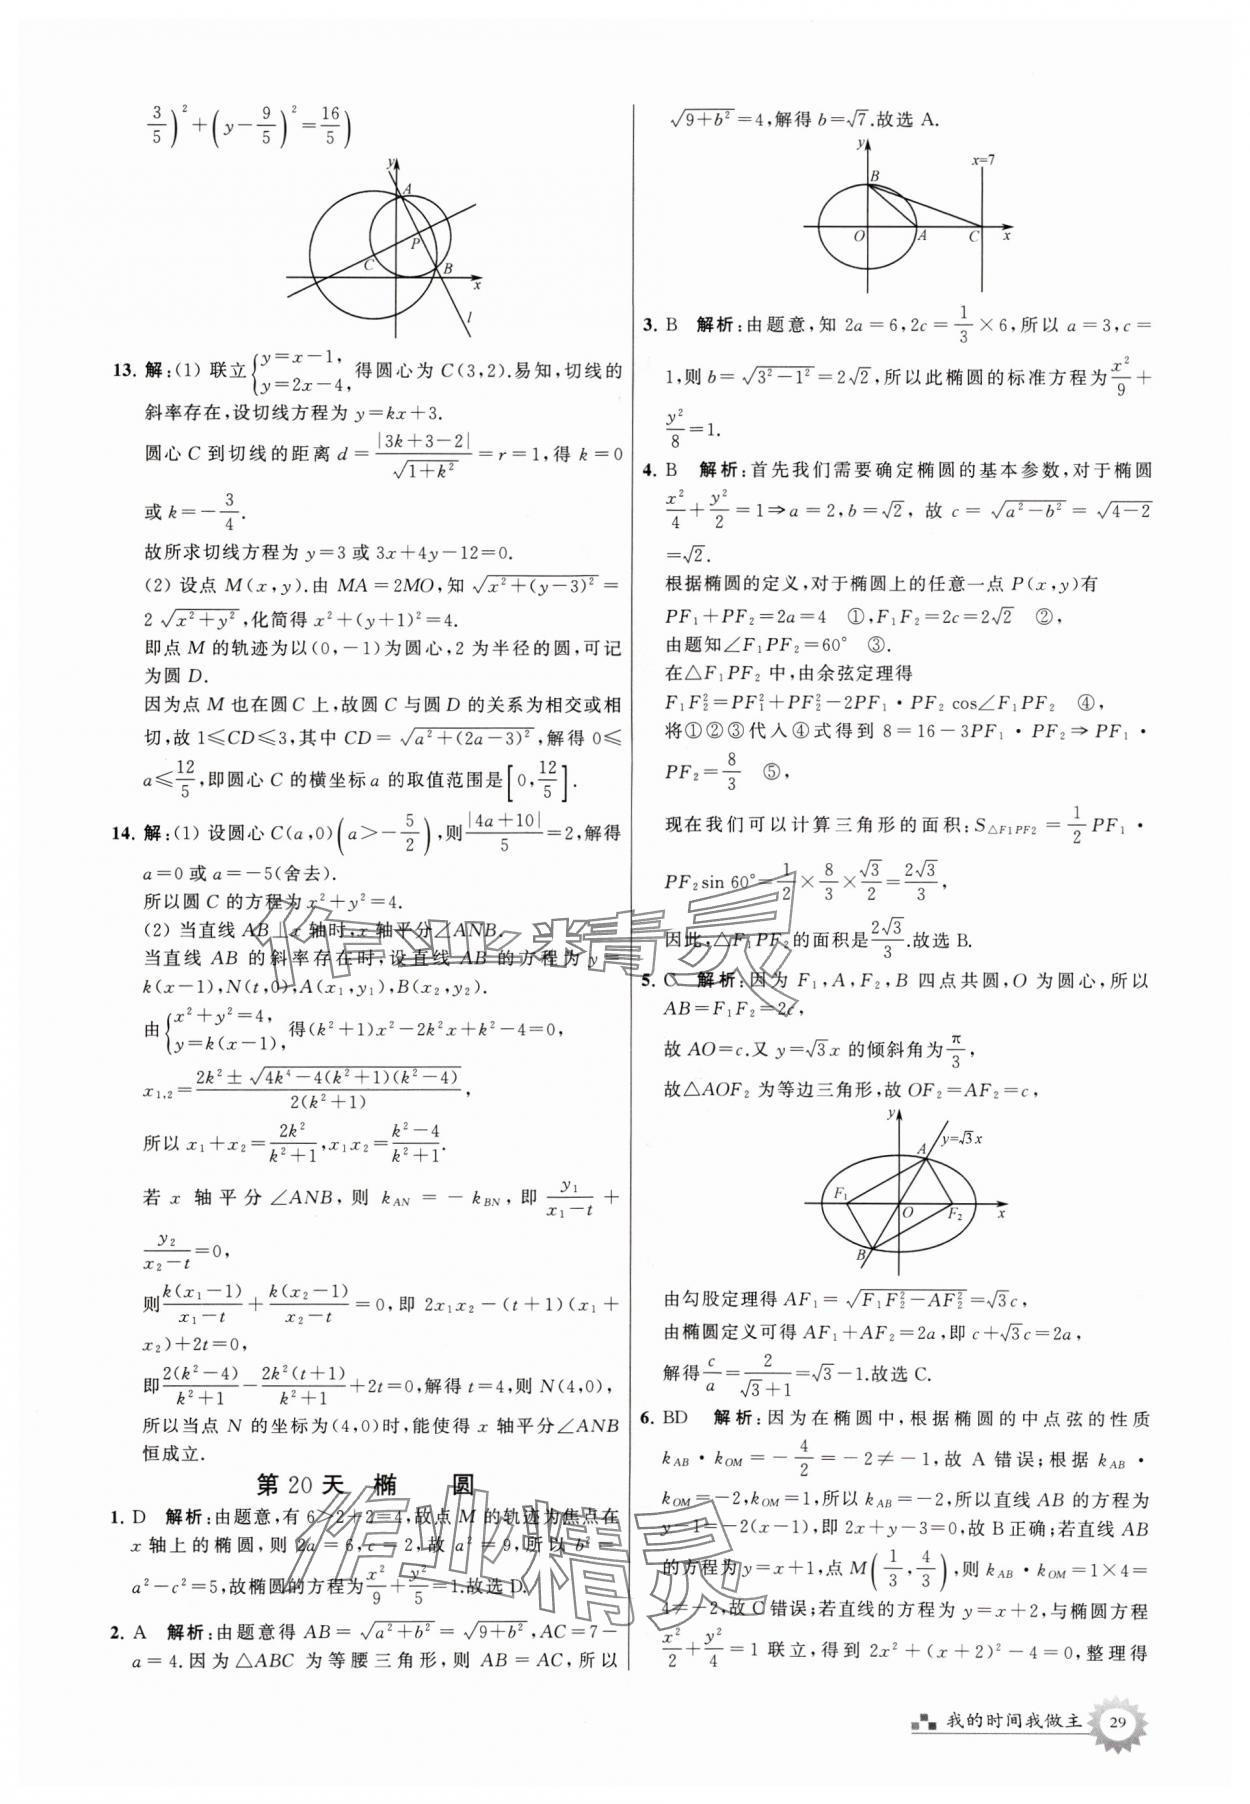 3/5)²+(y−9/5)²=16/5)
y
A
P
C
B
x
l
13. 解:(1) 联立{y=x−1, y=2x−4, 得圆心为 C(3,2).易知,切线的
斜率存在,设切线方程为 y=kx+3.
圆心 C 到切线的距离 d=|3k+3−2|/√(1+k²)=r=1,得 k=0
或 k=−3/4.
故所求切线方程为 y=3 或 3x+4y−12=0.
(2) 设点 M(x,y).由 MA=2MO,知 √(x²+(y−3)²)=
2√(x²+y²),化简得 x²+(y+1)²=4.
即点 M 的轨迹为以(0,−1)为圆心,2 为半径的圆,可记
为圆 D.
因为点 M 也在圆 C 上,故圆 C 与圆 D 的关系为相交或相
切,故 1≤CD≤3,其中 CD=√(a²+(2a−3)²),解得 0≤
a≤12/5,即圆心 C 的横坐标 a 的取值范围是[0,12/5].
14. 解:(1) 设圆心 C(a,0)(a>−5/2),则|4a+10|/5=2,解得
a=0 或 a=−5(舍去).
所以圆 C 的方程为 x²+y²=4.
(2) 当直线 AB⊥x 轴时,x 轴平分∠ANB.
当直线 AB 的斜率存在时,设直线 AB 的方程为 y=
k(x−1),N(t,0),A(x₁,y₁),B(x₂,y₂).
由{x²+y²=4, y=k(x−1), 得(k²+1)x²−2k²x+k²−4=0,
x₁,₂=(2k²±√(4k⁴−4(k²+1)(k²−4)))/(2(k²+1)),
所以 x₁+x₂=2k²/(k²+1),x₁x₂=(k²−4)/(k²+1).
若 x 轴平分∠ANB,则 k_AN=−k_BN,即 y₁/(x₁−t)+
y₂/(x₂−t)=0,
则 k(x₁−1)/(x₁−t)+k(x₂−1)/(x₂−t)=0,即 2x₁x₂−(t+1)(x₁+
x₂)+2t=0,
即 2(k²−4)/(k²+1)−2k²(t+1)/(k²+1)+2t=0,解得 t=4,则 N(4,0),
所以当点 N 的坐标为(4,0)时,能使得 x 轴平分∠ANB
恒成立.
第 20 天 椭 圆
1. D 解析:由题意,有 6>2+2=4,故点 M 的轨迹为焦点在
x 轴上的椭圆,则 2a=6,c=2,故 a²=9,所以 b²=
a²−c²=5,故椭圆的方程为 x²/9+y²/5=1.故选 D.
2. A 解析:由题意得 AB=√(a²+b²)=√(9+b²),AC=7−
a=4.因为△ABC 为等腰三角形,则 AB=AC,所以
√(9+b²)=4,解得 b=√7.故选 A.
y
x=7
B
O
A
C
x
3. B 解析:由题意,知 2a=6,2c=1/3×6,所以 a=3,c=
1,则 b=√(3²−1²)=2√2,所以此椭圆的标准方程为 x²/9+
y²/8=1.
4. B 解析:首先我们需要确定椭圆的基本参数,对于椭圆
x²/4+y²/2=1⇒a=2,b=√2,故 c=√(a²−b²)=√(4−2)
=√2.
根据椭圆的定义,对于椭圆上的任意一点 P(x,y)有
PF₁+PF₂=2a=4 ①,F₁F₂=2c=2√2 ②,
由题知∠F₁PF₂=60° ③.
在△F₁PF₂ 中,由余弦定理得
F₁F₂²=PF₁²+PF₂²−2PF₁·PF₂cos∠F₁PF₂ ④,
将①②③代入④式得到 8=16−3PF₁·PF₂⇒PF₁·
PF₂=8/3 ⑤,
现在我们可以计算三角形的面积:S△F₁PF₂=1/2PF₁·
PF₂sin 60°=1/2×8/3×√3/2=2√3/3,
因此,△F₁PF₂的面积是2√3/3.故选 B.
5. C 解析:因为 F₁,A,F₂,B 四点共圆,O 为圆心,所以
AB=F₁F₂=2c,
故 AO=c.又 y=√3x 的倾斜角为π/3,
故△AOF₂ 为等边三角形,故 OF₂=AF₂=c,
y
y=√3x
A
F₁
O
F₂
x
B
由勾股定理得 AF₁=√(F₁F₂²−AF₂²)=√3c,
由椭圆定义可得 AF₁+AF₂=2a,即 c+√3c=2a,
解得 c/a=2/(√3+1)=√3−1.故选 C.
6. BD 解析:因为在椭圆中,根据椭圆的中点弦的性质
k_AB·k_OM=−4/2=−2≠−1,故 A 错误;根据 k_AB·
k_OM=−2,k_OM=1,所以 k_AB=−2,所以直线 AB 的方程为
y−1=−2(x−1),即 2x+y−3=0,故 B正确;若直线 AB
的方程为 y=x+1,点 M(1/3,4/3),则 k_AB·k_OM=1×4=
4≠−2,故 C 错误;若直线的方程为 y=x+2,与椭圆方程
x²/2+y²/4=1 联立,得到 2x²+(x+2)²−4=0,整理得
我的时间我做主 29
作业精灵
作业精灵